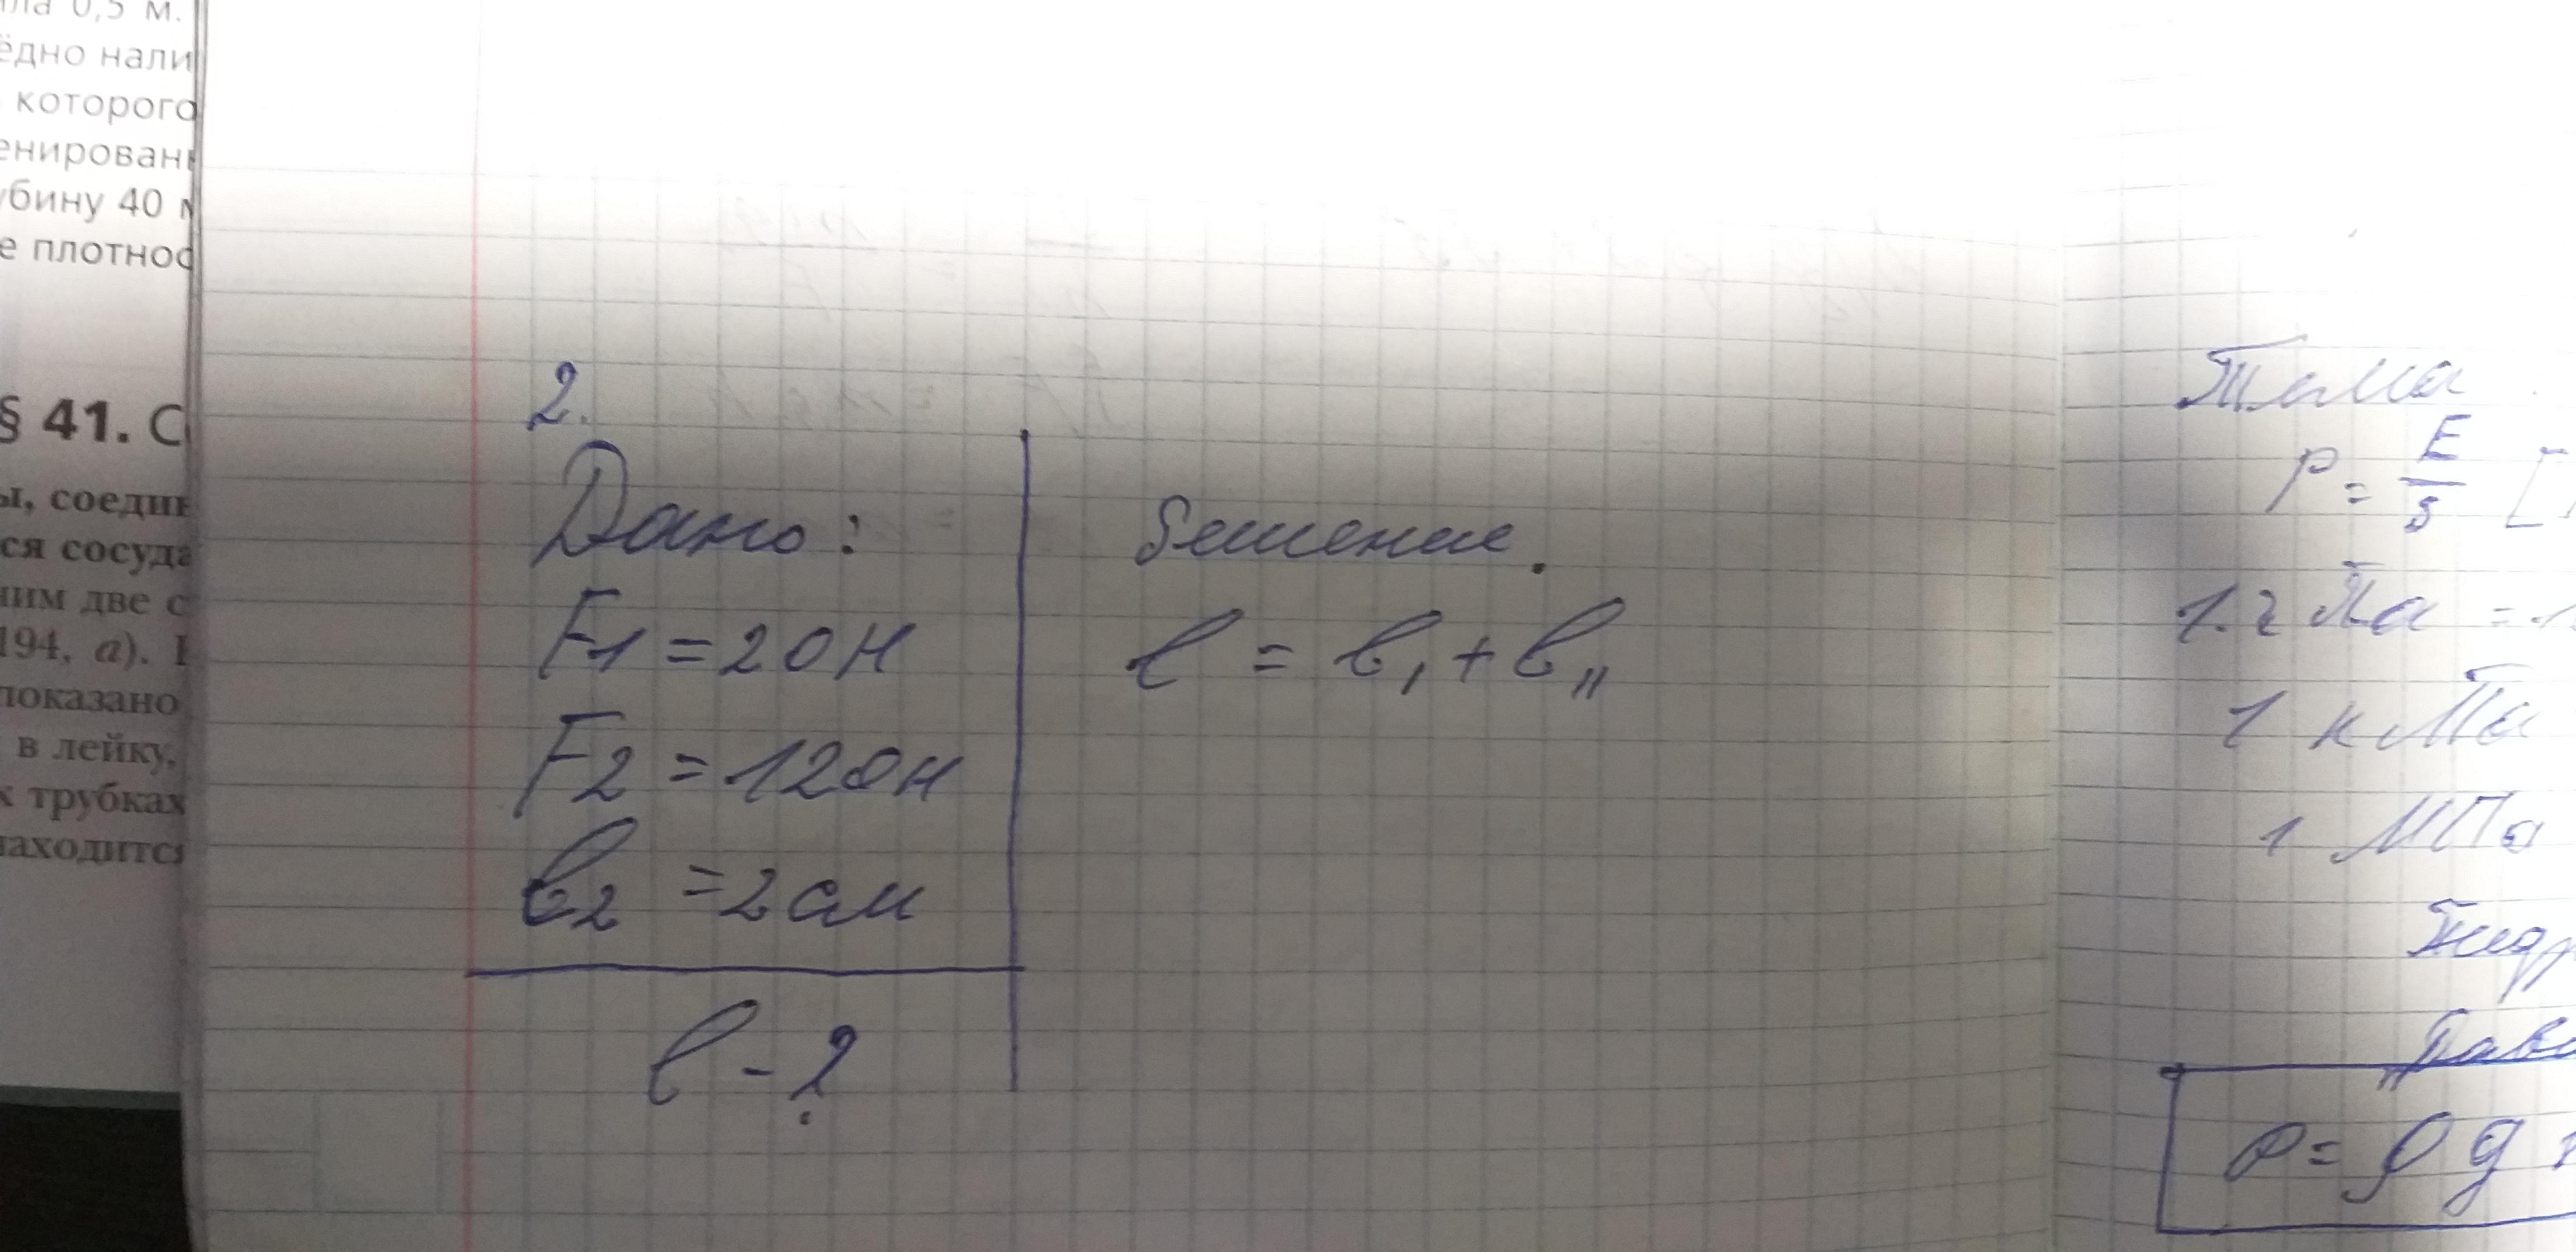 0,5 м.
ёдно нали
которого
енирован
убину 40 м
е плотнос
§ 41. С
ы, соедин
ся сосуда
ним две с
194, а). 
показано
в лейку,
х трубках
находится
2.
Дано:
F1 = 20 Н
F2 = 120 Н
ℓ2 = 2 см
ℓ - ?
Решение.
ℓ = ℓ₁ + ℓ₁₁
Тема
P = F/S [
1 кПа
1 МПа
Гидр
Давл
p = ρ g